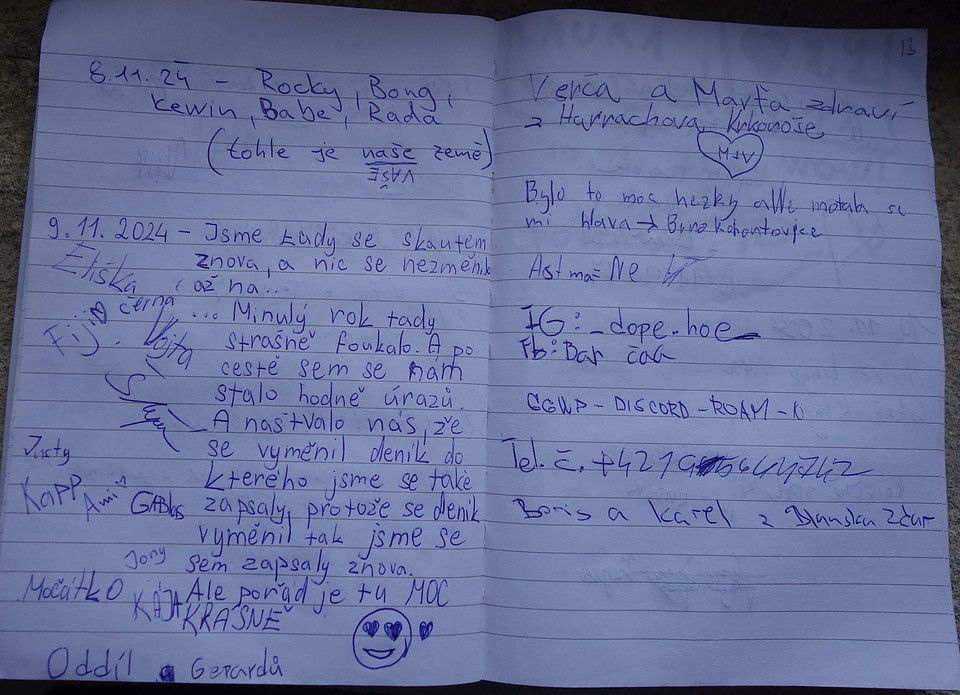 8.11.24 - Rocky, Bong,
Kewin, Babe, Rada
(tohle je naše země)
VAŠE
9.11.2024 - Jsme tady se skautem
znova, a nic se nezměnilo
až na...
... Minulý rok tady
strašně foukalo. A po
cestě sem se nám
stalo hodně úrazů.
A naštvalo nás, že
se vyměnil deník do
kterého jsme se také
zapsaly, protože se deník
vyměnil tak jsme se
sem zapsaly znova.
Ale pořád je tu MOC
KRÁSNĚ
Eliška
černá
Fiji
Vojta
Justy
Kapp
Ami
Jony
Močátko
KÁJA
Oddíl Gerardů
13
Verča a Marťa zdraví
z Harrachova, Krkonoše
M+V
Bylo to moc hezky alle motala se
mi hlava →
Astma Ne
IG: _dope.hoe_
Fb: Bar čaa
DISCORD-ROAM-
Tel. č. +421
Boris a Karel z